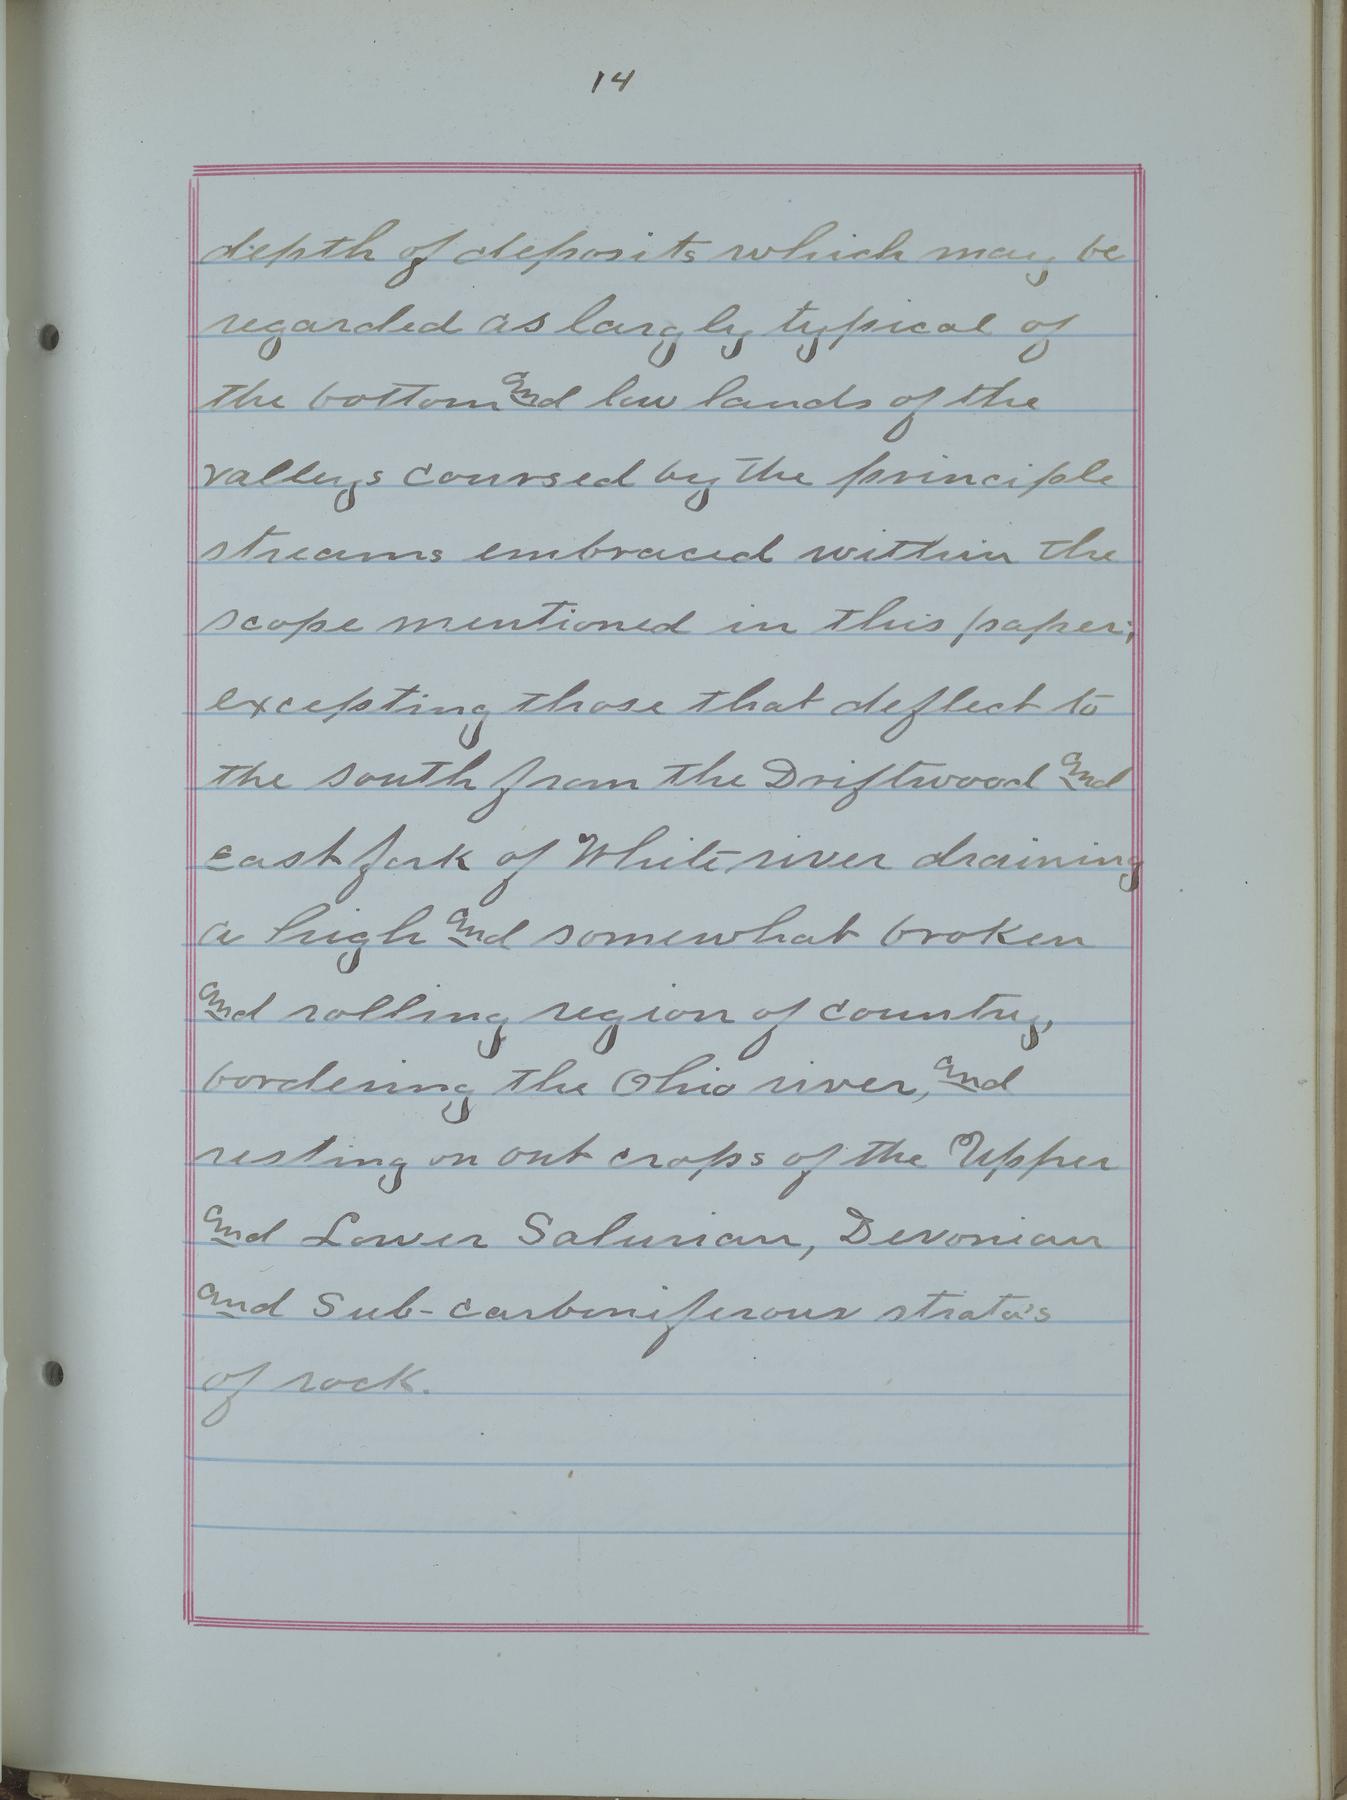 14
depth of deposits which may be
regarded as largly typical of
the bottom and low lands of the
valleys coursed by the principle
streams embraced within the
scope mentioned in this paper;
excepting those that deflect to
the south from the Driftwood and
east fork of White river draining
a high and somewhat broken
and rolling region of country,
bordering the Ohio river, and
resting on out crops of the Upper
and Lower Salurian, Devonian
and Sub-carboniferous strata's
of rock.